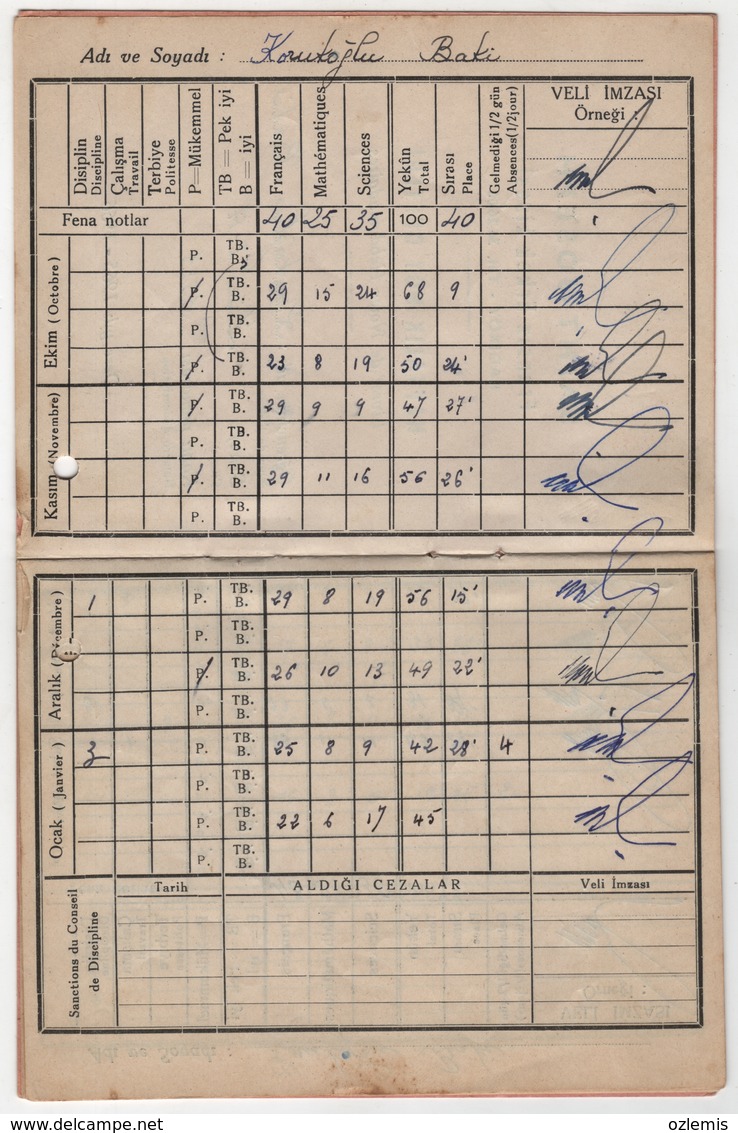 Adı ve Soyadı : Korutoğlu Bati
Disiplin Discipline
Çalışma Travail
Terbiye Politesse
P=Mükemmel
TB = Pek iyi
B = iyi
Français
Mathématiques
Sciences
Yekûn Total
Sırası Place
Gelmediği 1/2 gün
Absences (1/2 jour)
VELİ İMZASI
Örneği :
Fena notlar 40 25 35 100 40
Ekim (Octobre)
P. TB. B.
P. TB. B. 29 15 24 68 9
P. TB. B.
P. TB. B. 23 8 19 50 24'
Kasım (Novembre)
P. TB. B. 29 9 9 47 27'
P. TB. B.
P. TB. B. 29 11 16 56 26'
P. TB. B.
Aralık (Décembre)
1 P. TB. B. 29 8 19 56 15'
P. TB. B.
P. TB. B. 26 10 13 49 22'
P. TB. B.
Ocak (Janvier)
3 P. TB. B. 25 8 9 42 28' 4
P. TB. B.
P. TB. B. 22 6 17 45
P. TB. B.
Sanctions du Conseil
de Discipline
Tarih ALDIĞI CEZALAR Veli İmzası
ozlemis